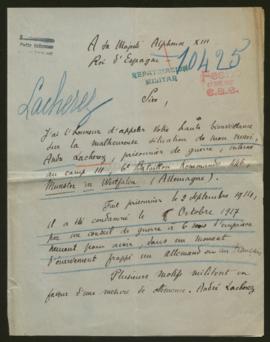 A Sa Majesté Alphonse XIII
Roi d'Espagne
10425
REPATRIACION
MILITAR
Lacherez
Sire,
J'ai l'honneur d'appeler votre haute bienveillance
sur la malheureuse situation de mon mari,
André Lacherez, prisonnier de guerre, interné
au camp III, 6e Bataillon Kommando
Munster in Westfalen (Allemagne).
Fait prisonnier le 2 septembre 1914,
il a été condamné le Octobre 1917
par un conseil de guerre à 6 mois d'emprison
nement pour avoir, dans un moment
d'énervement frappé un allemand
Plusieurs motifs militent en
faveur d'une mesure de clémence. André Lacherez